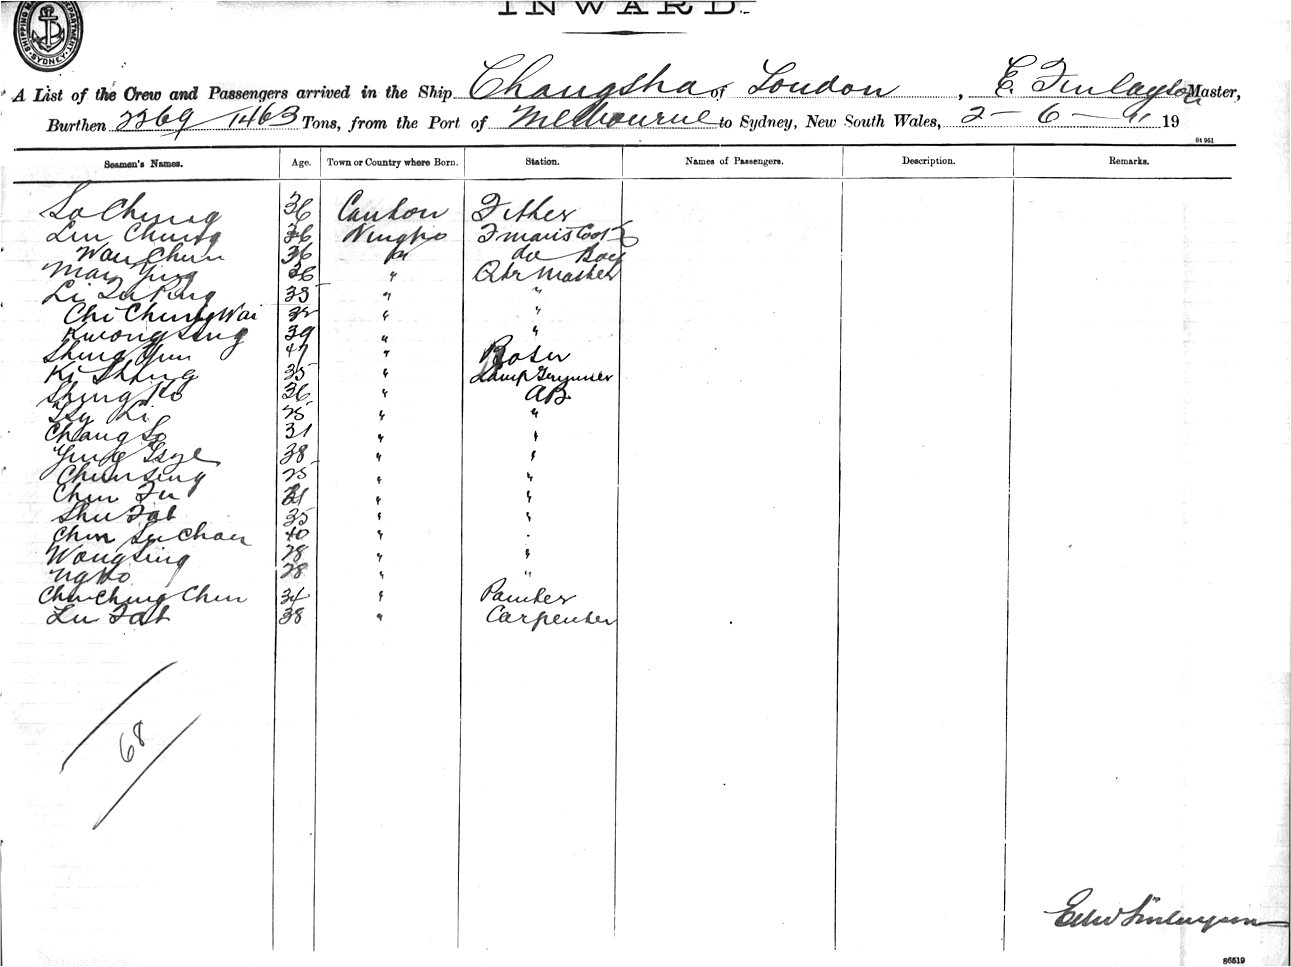 SHIPPING DEPARTMENT SYDNEY
INWARD.
A List of the Crew and Passengers arrived in the Ship Changsha of London, E. Finlayson Master,
Burthen 2269 / 1463 Tons, from the Port of Melbourne to Sydney, New South Wales, 2-6- 19
St 951
Seamen's Names. Age. Town or Country where Born. Station. Names of Passengers. Description. Remarks.
Lo Chung 36 Canton
Lin Chung 36 Ningpo Cook
Wan Chun 36 do Boy
Man Ying 36 " Qtr Master
Li 33 " "
Chi Chung Wai " "
Kwong Sing 39 " "
Shing 47 " Bosn
Ki Shang 35 " Lamp Trimmer
Shing Ko 36 " AB
Li 25 " "
Chang So 31 " "
Ying 38 " "
Chun Sing 25 " "
Chun Fu " "
Shu Fat 35 " "
Chin Chan 40 " "
Wong Sing 28 " "
Ng Ko 28 " "
Chu Ching Chen 34 " Painter
Lu Fat 38 " Carpenter
68
Edw Finlayson
86519